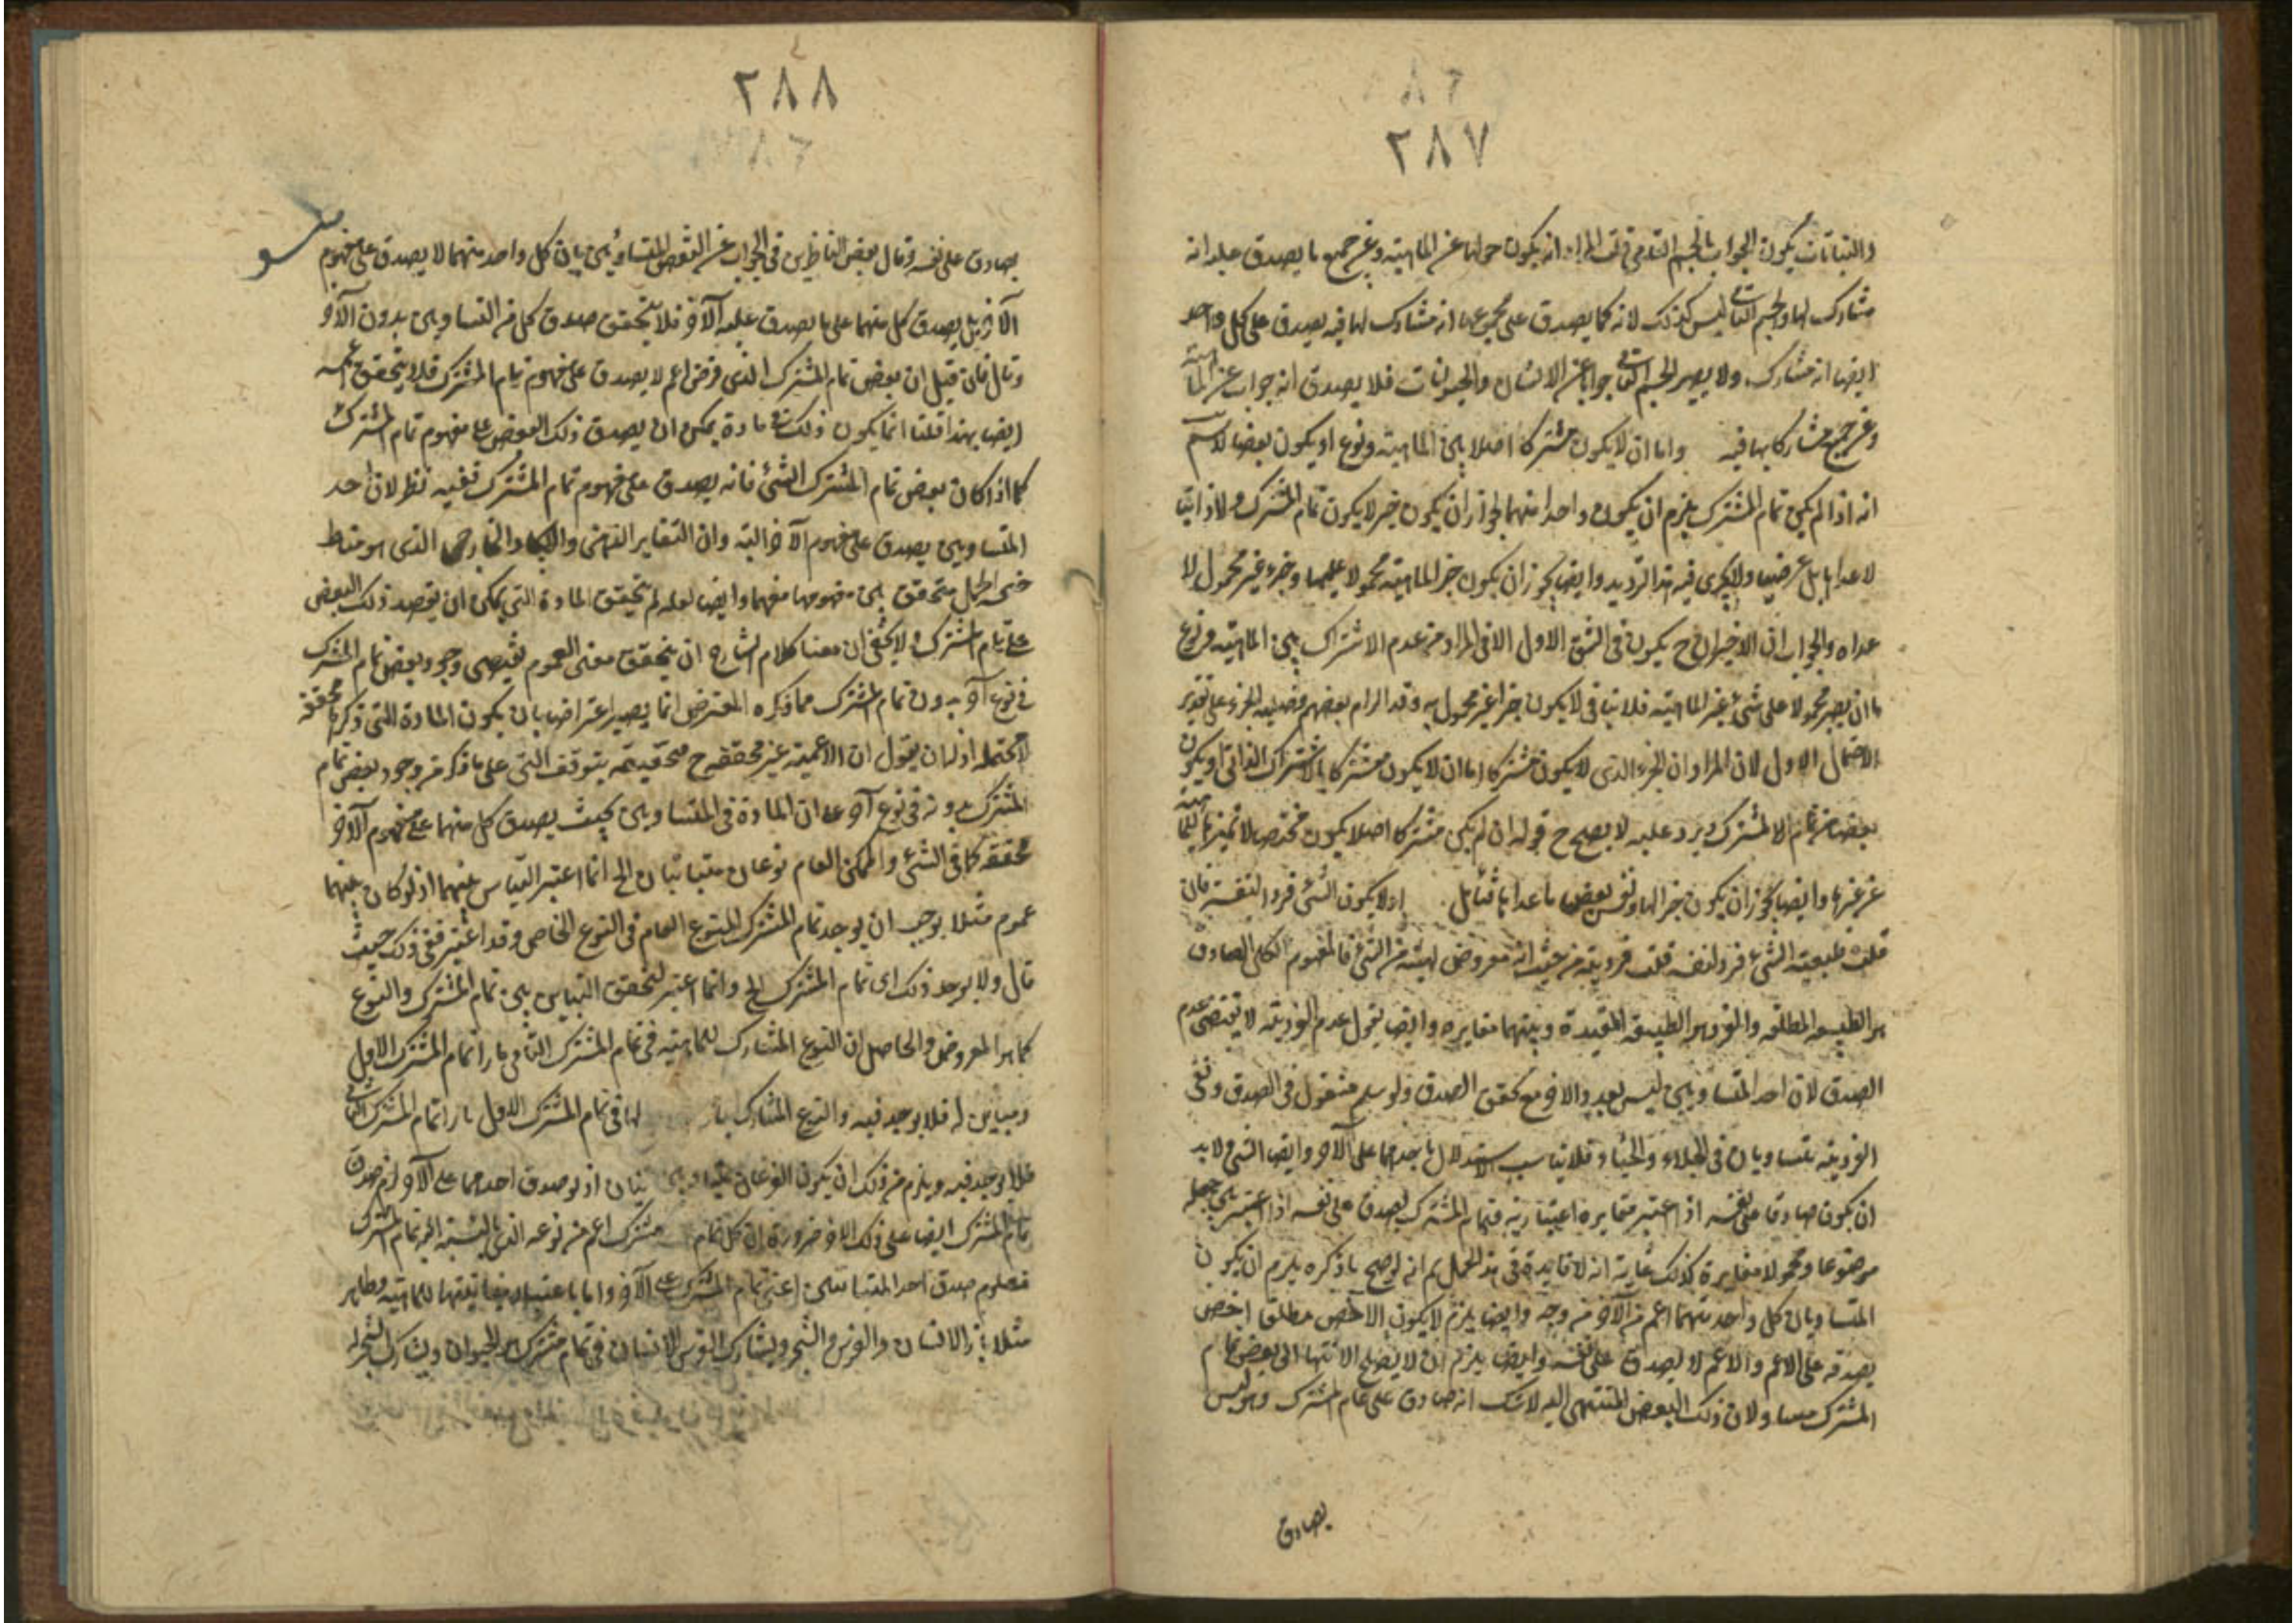 ٢٨٧
والنباتات يكون الجواب بالجسم النامي قلت المراد ان يكون جوابا عن الماهية وعن جميع ما يصدق عليه انه
مشارك لها والجسم النامى ليس كذلك لانه كما يصدق على مجموعها انه مشارك لها فيه يصدق على كل واحد
ايضا انه مشارك ولا يصير الجسم النامى جوابا عن الانسان والحيوانات فلا يصدق انه جواب عن الماهية
وعن جميع مشاركاتها فيه واما ان لا يكون مشتركا اصلا بين الماهية ونوع او يكون بعضا لا نسلم
انه اذا لم يكن تمام المشترك يلزم ان يكون واحدا منهما لجواز ان يكون جزء لا يكون تمام المشترك ولا ذاتيا
لا عداها بل عرضيا ولا يجرى فيه هذا الترديد وايضا يجوز ان يكون جزء الماهية محمولا عليها وجزء غير محمول لا
عداه والجواب ان الاخيران ح يكون فى الشق الاول الا فى المراد من عدم الاشتراك بين الماهية ونوع
ما ان يصير محمولا على شئ غير الماهية فلا ينافى لا يكون جزأ غير محمول به وقد الزام بعضهم
الاحتمال الاول لان المراد ان الجزء الذى لا يكون مشتركا اما ان لا يكون مشتركا بالاشتراك الذاتى او يكون
بعضا من تمام الا لمشترك ويرد عليه لا يصح ح قوله ان لم يكن مشتركا اصلا يكون مختصا لا تميز الماهية
عن غيرها وايضا يجوز ان يكون جزء الها ونفس بعض ما عداها فتأمل اذ لا يكون الشئ فردا لنفسه فان
قلت طبيعة الشئ فرد لنفسه قلت فرديته من حيث انه معروض لهيئة من الشئ فالمفهوم الكلى الصادق
هو الطبيعة المطلقة والفرد هو الطبيعة المقيدة وبينهما مغايرة وايضا نقول عدم الفردية لا يقتضى عدم
الصدق لان احد المتساويين ليس بفرد والاخر مع تحقق الصدق ولو سلم فنقول فى الصدق ونفى
الفردية متساويان فى الجلاء والخفاء فلا يناسب الاستدلال باحدهما على الآخر وايضا الشئ لا بد
ان يكون صادقا على نفسه اذا اعتبر مغايرة اعتبارية فتمام المشترك يصدق على نفسه اذا اعتبر بين جعله
موضوعا ومحمولا مغايرة كذلك غاية انه لا فايدة فى هذا الحمل ثم انه لو صح ما ذكره يلزم ان يكون
المتساويان كل واحد منهما اعم من الآخر من وجه وايضا يلزم لا يكون الاخص مطلقا اخص
يصدقه على الاعم والاعم لا يصدق على نفسه وايضا يلزم ان لا يصلح الانتهاء الى بعض تمام
المشترك مساو لان ذلك البعض المنتهى اليه لا شك انه صادق على تمام المشترك وهو ليس
بصادق
٢٨٨
بصادق على نفسه وقال بعض الناظرين فى الجواب عن النقض بالمتساويين بان كل واحد منهما لا يصدق على مفهوم
الآخر بل يصدق كل منهما على ما يصدق عليه الآخر فلا يتحقق صدق كل من المتساويين بدون الآخر
وقال فان قيل ان بعض تمام المشترك الذى فرض اعم لا يصدق على مفهوم تمام المشترك فلا يتحقق
ايضا بهذا قلنا انما يكون ذلك فى مادة يمكن ان يصدق ذلك البعض على مفهوم تمام المشترك
كما اذا كان بعض تمام المشترك الشئ فانه يصدق على مفهوم تمام المشترك ففيه نظر لان احد
المتساويين يصدق على مفهوم الآخر البتة وان التغاير الذهنى والخارجى الذى هو مناط
الحمل متحقق بين مفهومها وايضا لعله لم يتحقق المادة التى يمكن ان يصدق ذلك البعض
على تمام المشترك ولا يخفى ان معنا كلام الشارح ان يتحقق معنى العموم يقتضى وجود بعض تمام المشترك
فى نوع آخر بدون تمام المشترك فما ذكره المعترض انما يصير اعتراضا بان يكون المادة التى ذكرها محققة
لا محتملة اذ له ان يقول ان الاعمية غير محققة ح يتوقف التى على ما ذكر من وجود بعض تمام
المشترك بدونه فى نوع آخر ان المادة فى المتساويين بحيث يصدق كل منهما على مفهوم الآخر
محققة كما فى الشئ والممكن العام نوعان متباينان الخ انما اعتبر التباين بينهما اذ لو كان بينهما
عموم مثلا يوجب ان يوجد تمام المشترك للنوع العام فى النوع الخاص وقد اعتبر نفى ذلك حيث
قال ولا يوجد ذلك اى تمام المشترك الخ وانما اعتبر لتحقق التباين بين تمام المشترك والنوع
كما هو المفروض والحاصل ان النوع المشارك للماهية فى تمام المشترك الثانى بازاء تمام المشترك الاول
ومباين له فلا يوجد فيه والنوع المشارك لها فى تمام المشترك الاول بازاء تمام المشترك الثانى
فلا يوجد فيه ويلزم من ذلك ان يكون النوعان متباينان اذ لو صدق احدهما على الآخر لزم صدق
تمام المشترك ايضا على ذلك الاخر ضرورة ان كل تمام مشترك اعم من نوعه الذى بالنسبة اليه تمام المشترك
فمعلوم صدق احد المتباينين اعنى تمام المشترك على الآخر واما باعتبار للماهية وظاهر
مثلا بازاء الانسان والفرس والشجر ويشارك الفرس الانسان فى تمام مشترك هو الحيوان ويشارك الشجر له